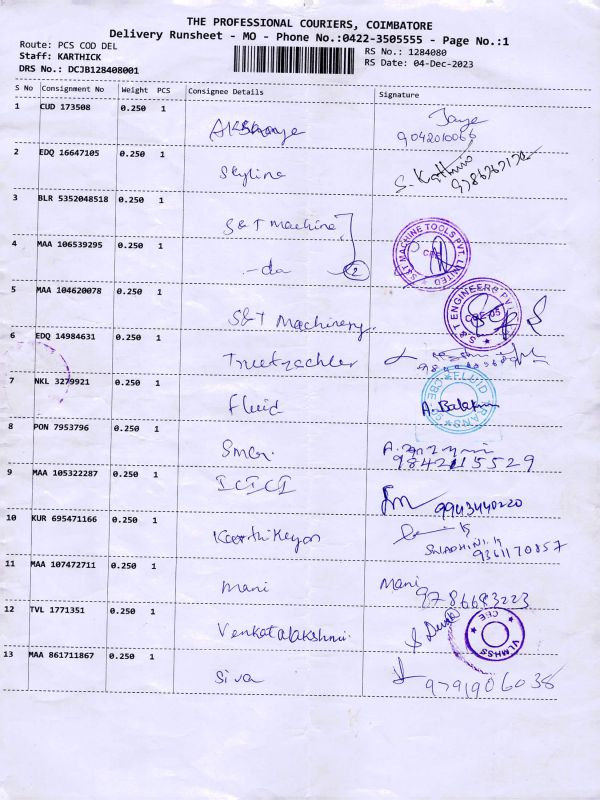 THE PROFESSIONAL COURIERS, COIMBATORE
Delivery Runsheet - MO - Phone No.:0422-3505555 - Page No.:1
Route: PCS COD DEL
Staff: KARTHICK
DRS No.: DCJB128408001
RS No.: 1284080
RS Date: 04-Dec-2023
S No Consignment No Weight PCS Consignee Details Signature
1 CUD 173508 0.250 1
9042010066
2 EDQ 16647105 0.250 1 Skyline
S. Karthik
3 BLR 5352048518 0.250 1 S&T Machine
S&T MACHINE TOOLS PVT. LIMITED
CBE
4 MAA 106539295 0.250 1 -do 2
5 MAA 104620078 0.250 1 S&T Machinery.
S & T ENGINEERS PVT
CBE-05
6 EDQ 14984631 0.250 1 Truetzschler
7 NKL 3279921 0.250 1 Fluid
FLUID
A. Balakum
8 PON 7953796 0.250 1
9842115529
9 MAA 105322287 0.250 1 ICICI
9943440220
10 KUR 695471166 0.250 1 Karthikeyan
9361170857
11 MAA 107472711 0.250 1 Mani Mani
9786643223
12 TVL 1771351 0.250 1 Venkatalakshmi
VLMHSS CBE
13 MAA 861711867 0.250 1 Siva
9791906038